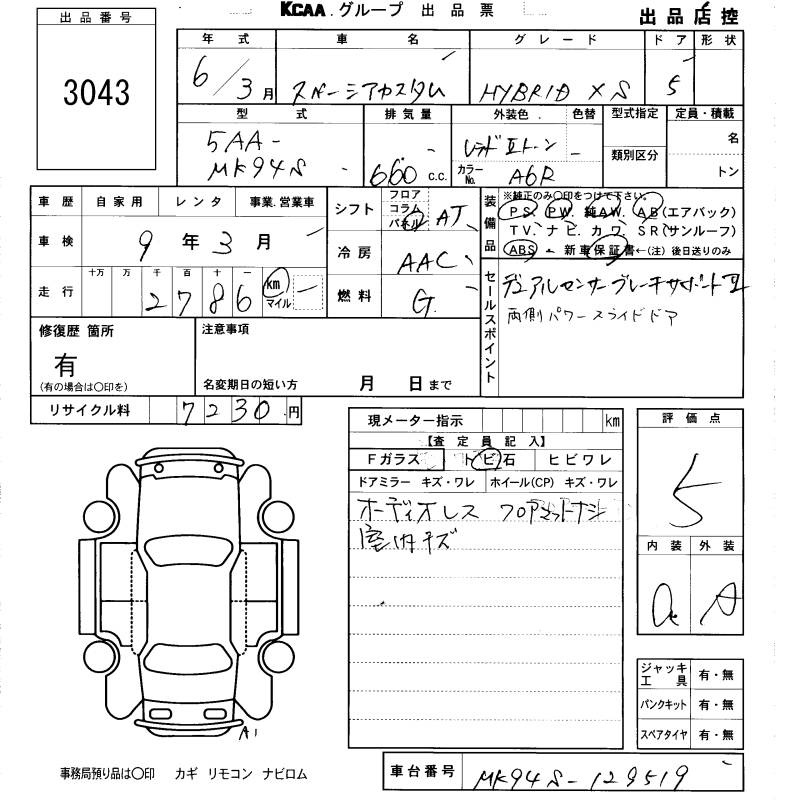 KCAA.グループ 出品票
出品店控
出品番号
3043
年式 車名 グレード ドア 形状
6/3月 スペーシアカスタム HYBRID XS 5
型式 排気量 外装色 色替 型式指定 定員・積載
5AA-
MK94S 660 c.c. レッドⅡトーン 類別区分 名
カラーNo. A6R トン
車歴 自家用 レンタ 事業.営業車
車検 9年3月
走行 十万 万 千 百 十 一
2786 km マイル
シフト フロア コラム パネル AT
冷房 AAC
燃料 G
装備品 ※純正のみ〇印をつけて下さい。
PS. PW. 純AW. AB(エアバック)
TV. ナビ. カワ. SR(サンルーフ)
ABS・新車保証書←(注)後日送りのみ
セールスポイント
デュアルセンサーブレーキサポートⅡ
両側パワースライドドア
修復歴 箇所
有
(有の場合は〇印を)
注意事項
名変期日の短い方 月 日まで
リサイクル料 7230円
現メーター指示 km
【査定員記入】
Fガラス トビ石 ヒビワレ
ドアミラー キズ・ワレ ホイール(CP) キズ・ワレ
オーディオレス フロアマットナシ
室内キズ
評価点
5
内装 外装
A
ジャッキ工具 有・無
パンクキット 有・無
スペアタイヤ 有・無
A1
事務局預り品は〇印 カギ リモコン ナビロム
車台番号 MK94S-129519